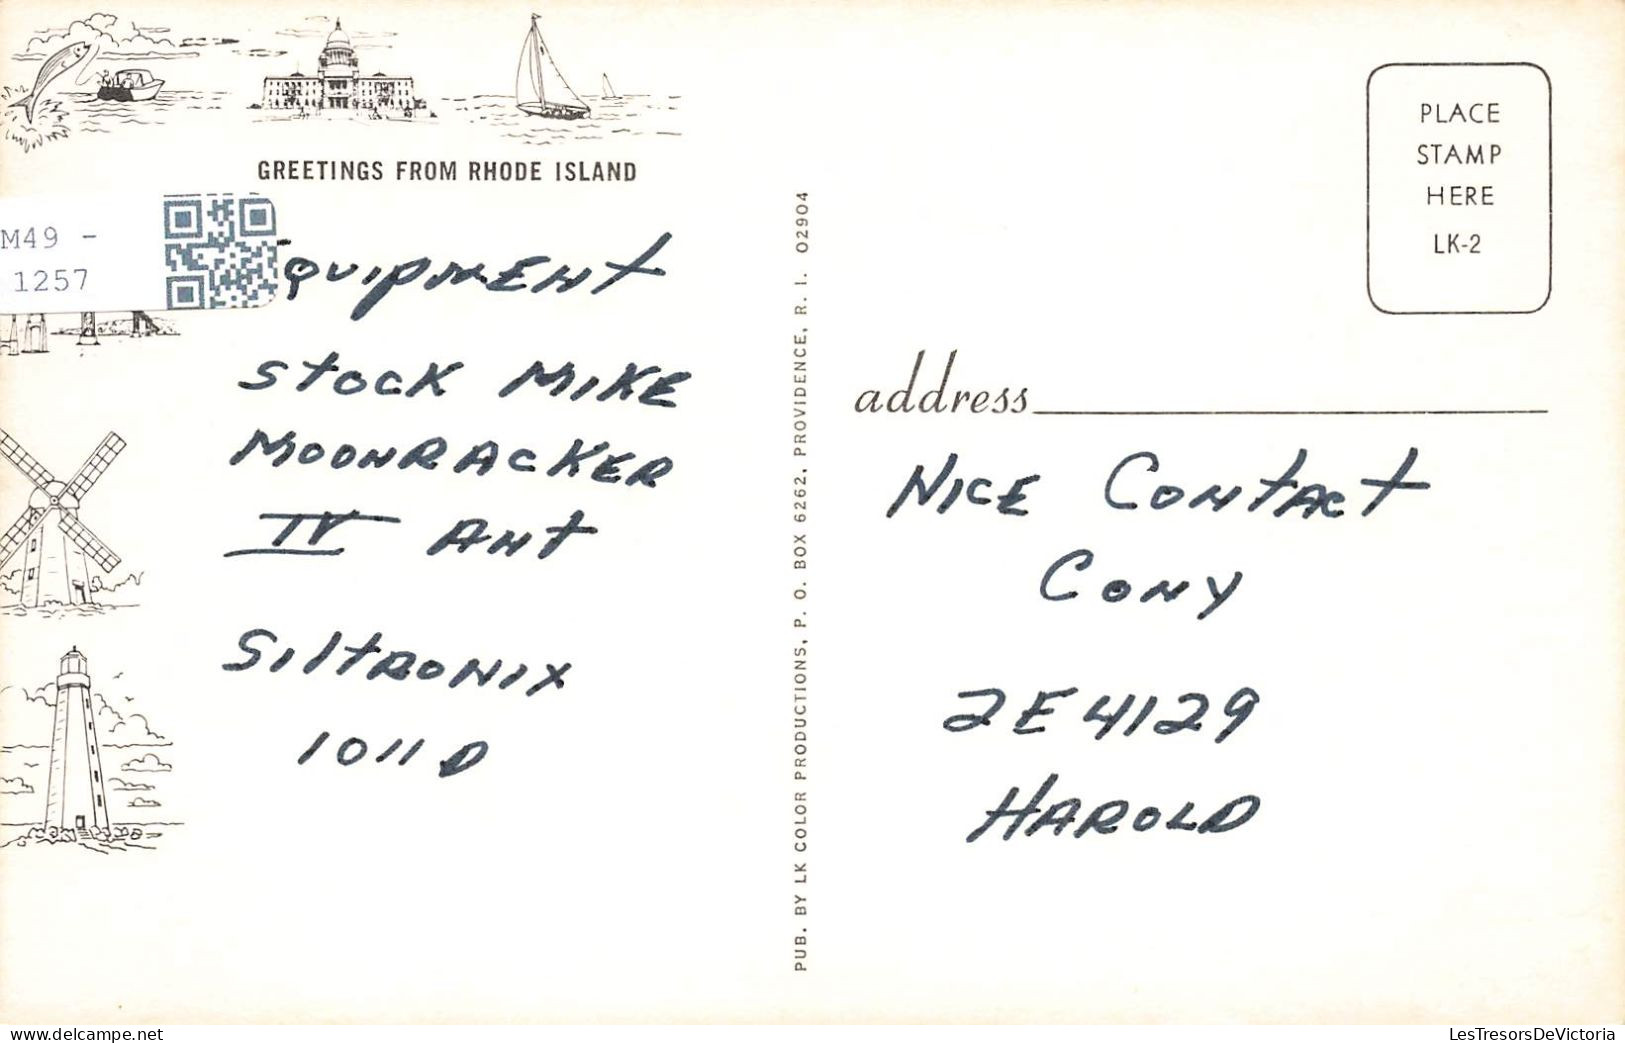 GREETINGS FROM RHODE ISLAND
M49 -
1257
Equipment
Stock Mike
Moonracker
IV Ant
Siltronix
1011 D
PUB. BY LK COLOR PRODUCTIONS, P. O. BOX 6262, PROVIDENCE, R. I. 02904
PLACE
STAMP
HERE
LK-2
address
Nice Contact
Cony
2E4129
Harold
delcampe.net
LesTresorsDeVictoria